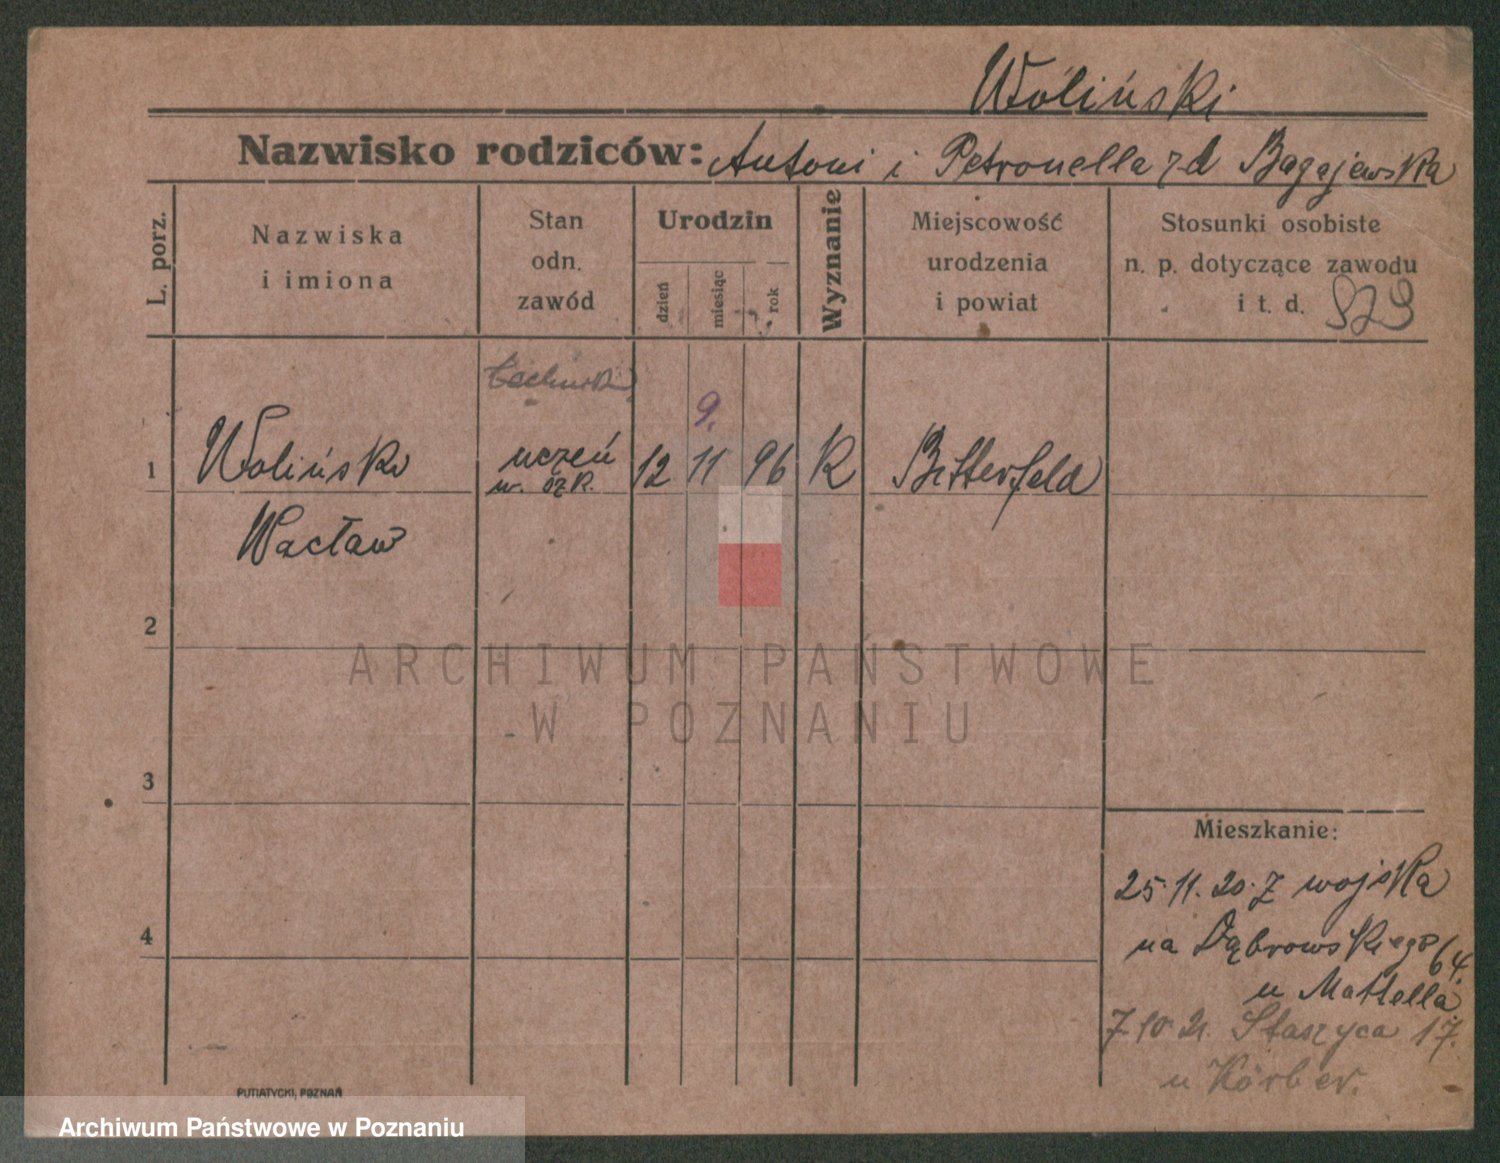 Woliński
Nazwisko rodziców: Antoni i Petronella zd Bagajewska
L. porz.
Nazwiska
i imiona
Stan
odn.
zawód
Urodzin
dzień
miesiąc
rok
Wyznanie
Miejscowość
urodzenia
i powiat
Stosunki osobiste
n. p. dotyczące zawodu
i t. d. 929
technik
9.
1 Woliński uczeń 12 11 96 K Bitterfeld
w. sz R.
Wacław
2
ARCHIWUM PAŃSTWOWE
W POZNANIU
3
Mieszkanie:
25.11.20. Z wojska
4
na Dąbrowskiego 64.
u Mattella
7.10.21. Staszyca 17.
u Körber.
PUTIATYCKI, POZNAŃ
Archiwum Państwowe w Poznaniu